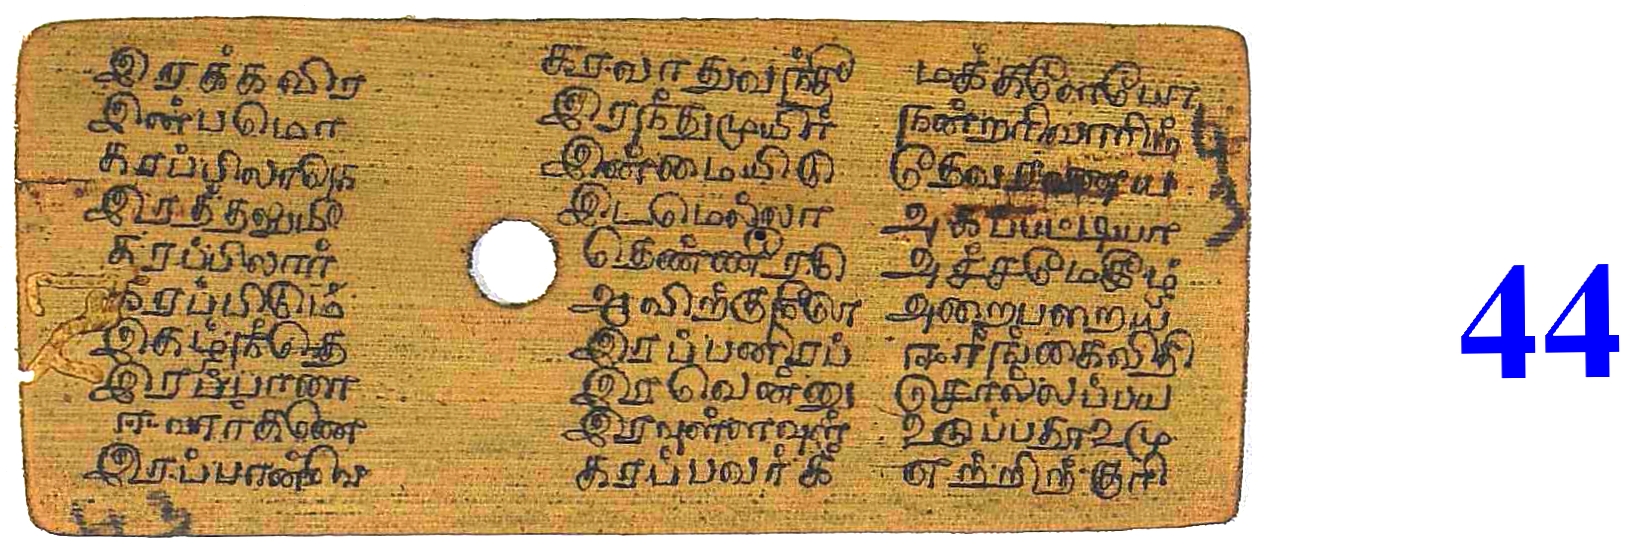 இரக்கவிர கரவாதுவந்தீ மக்களேபோ
இன்பமொ இரந்துமுயிர் நன்றறிவாரிற்
கரப்பிலாநெ இன்மையிடு தேவரனைய
இரத்தலுமீ இடமெல்லா அகப்பட்டியா
கரப்பிலார் தெண்ணீரடு அச்சமேகீழ்
கரப்பிடும் ஆவிற்குநீரெ அறைபறைய
இகழ்ந்தெ இரப்பனிரப் ஈர்ங்கைவிதி
இரப்பாரை இரவென்னு சொல்லப்பய
ஈவார்கணெ இரவுள்ளவுள் உடுப்பதூஉமு
இரப்பான்வெ கரப்பவர்க் எற்றிற்குரி
44